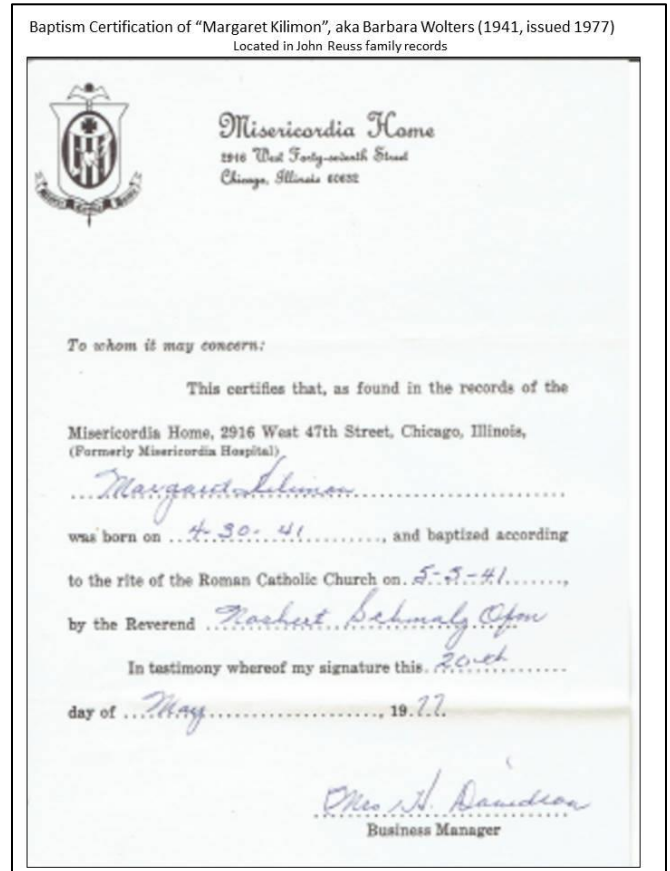 Baptism Certification of “Margaret Kilimon”, aka Barbara Wolters (1941, issued 1977)
Located in John Reuss family records
Misericordia Home
2916 West Forty-seventh Street
Chicago, Illinois 60632
To whom it may concern:
This certifies that, as found in the records of the
Misericordia Home, 2916 West 47th Street, Chicago, Illinois,
(Formerly Misericordia Hospital)
Margaret Kilimon
was born on 4-30-41, and baptized according
to the rite of the Roman Catholic Church on 5-5-41,
by the Reverend Schmalz Ofm
In testimony whereof my signature this 20th
day of May, 1977
Mrs H. Davidson
Business Manager